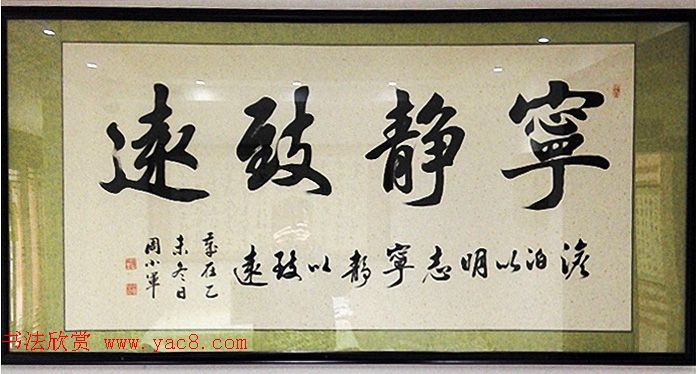 寧静致遠
澹泊以明志寧静以致遠
歲在乙
未冬日
周小軍
书法欣赏 www.yac8.com